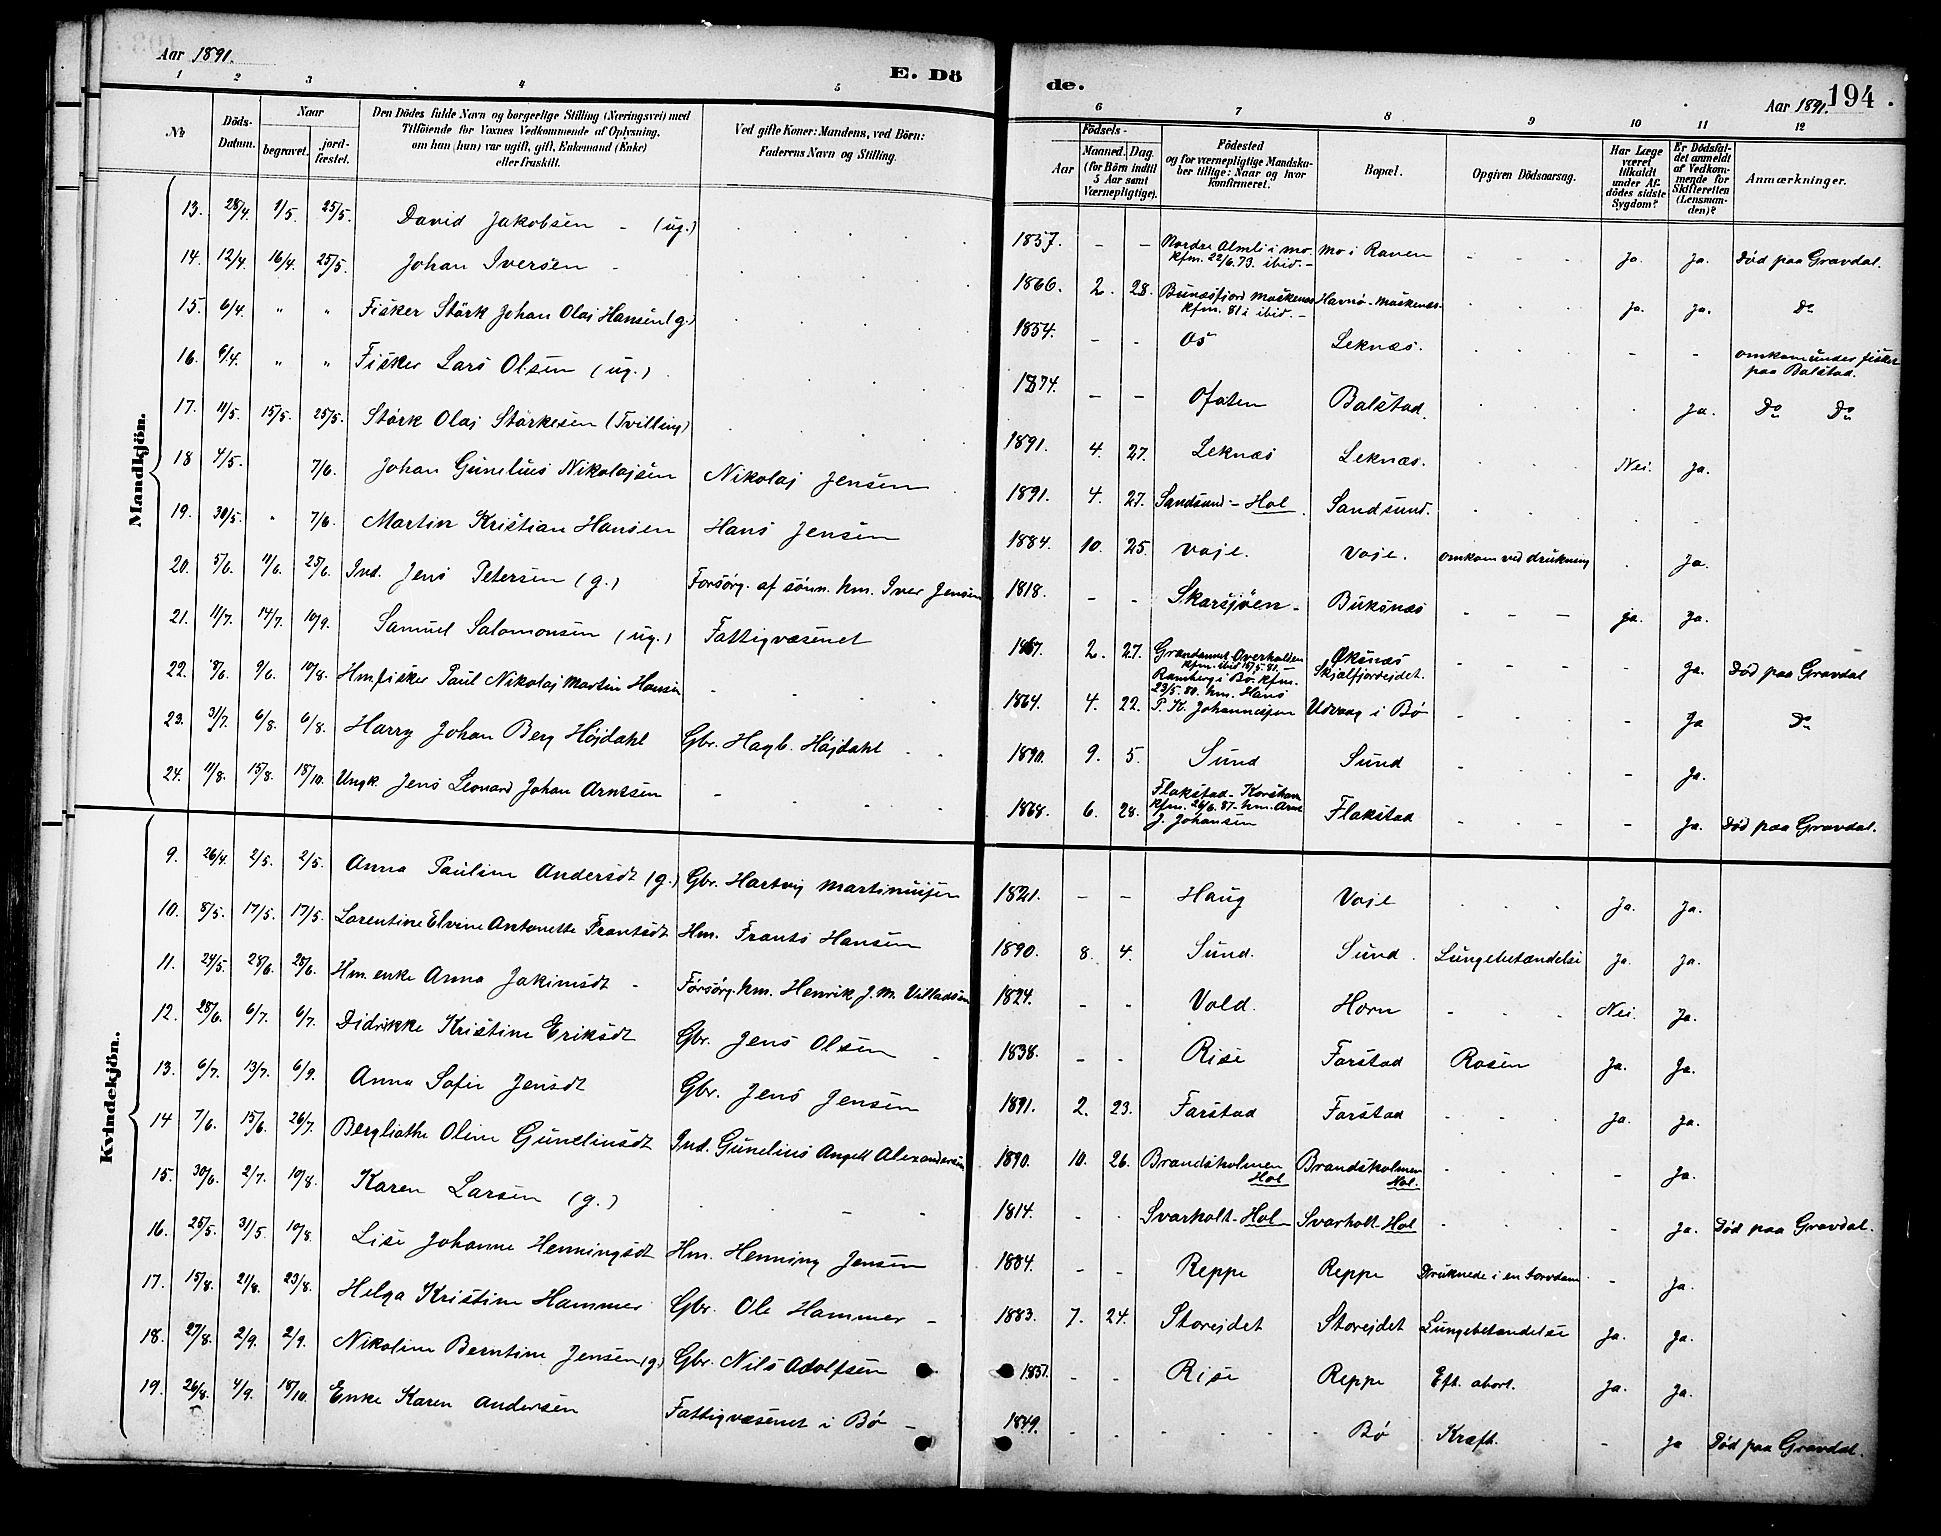 Aar 1891.
E. Döde.
Aar 1891.
194.
1 2 3 4 5 6 7 8 9 10 11 12
No
Döds-Datum.
Naar
begravet.
jordfæstet.
Den Dödes fulde Navn og borgerlige Stilling (Næringsvei) med Tilföiende for Voxnes Vedkommende af Oplysning, om han (hun) var ugift, gift, Enkemand (Enke) eller fraskilt.
Ved gifte Koner: Mandens, ved Börn: Faderens Navn og Stilling.
Födsels-
Aar
Maaned. Dag.
(for Börn indtil 5 Aar samt Værnepligtige).
Födested og for værnepligtige Mandskaber tillige: Naar og hvor konfirmeret.
Bopæl.
Opgiven Dödsaarsag.
Har Læge været tilkaldt under Afdödes sidste Sygdom?
Er Dödsfaldet anmeldt af Vedkommende for Skifteretten (Lensmanden)?
Anmærkninger.
Mandkjön.
13. 28/4. 1/5. 25/5. David Jakobsen - (ug.) 1857. - - Nordre Almli i Mo. kfm. 22/6.73. ibid. - Mo i Ranen - - - ja. ja. Död paa Gravdal.
14. 12/4. 16/4. 25/5. Johan Iversen - 1866. 2. 28. Bunæsfjord Moskenæs kfm. 81 i ibid. - Havnø-Moskenæs. ja. ja. Do
15. 6/4. " " Fisker Störk Johan Olaj Hansen (g.) 1854. - - Os Leknæs. - - omkom under fisket paa Balstad.
16. 6/4. " " Fisker Lars Olsen (ug.) 1874. - - Ofoten Balstad. ja. Do Do
17. 11/5. 15/5. 25/5. Störk Olaj Störkesen (Tvilling) 1891. 4. 27. Leknæs Leknæs. Nei. ja.
18 4/5. 7/6. Johan Gunelius Nikolajsen Nikolaj Jensen 1891. 4. 27. Sandsund - Hol Sandsund.
19. 30/5. " 7/6. Martin Kristian Hansen Hans Jensen 1884. 10. 25. Voje. Voje. omkom ved drukning ja.
20. 5/6. 11/6. 25/6. Ind. Jens Petersen (g.) Forsörg. af sönn. hm. Iver Jensen 1818. - - Skarsjöen - Buksnæs - - - ja. ja.
21. 11/7. 14/7. 10/9. Samuel Salomonsen (ug.) Fattigvæsenet 1867. 2. 27. Overhalden kfm. ibid Øksnæs Skjelfjordejdet. - - - - ja. Död paa Gravdal
22. 9/6. 10/8. Hm. fisker Paul Nikolaj Martin Hansen 1864. 4. 22. Ramberg i Bø. kfm. 23/5.80. hm. Hans P. K. Johannessen Udvaag i Bø - - - - ja Do
23. 31/7. 6/8. 6/8. Harry Johan Berg Höjdahl Gbr. Hagb. Höjdahl 1890. 9. 5. Sund Sund - ja.
24. 11/8. 15/8. 18/10. Ungk. Jens Leonard Johan Arntsen - 1868. 6. 28. Flakstad - kfm. 26/6.87. hm. Arnt J. Johansen Flakstad - ja. Död paa Gravdal.
Kvindekjön.
9. 26/4. 2/5. 2/5. Anna Pauline Andersdt (g.) Gbr. Hartvig Martinussen 1821. - - Haug Voje ja. ja.
10. 8/5. 17/5. 17/5. Lorentine Elvine Antonette Frantsdt Hm. Frants Hansen 1890. 8. 4. Sund. Sund. Lungebetændelse ja. ja.
11. 24/5. 28/6. 28/6. Hm. enke Anna Jakimsdt - Forsörg. hm. Henrik J. M. Villadsen 1824. - - Vold. Horn Nei. ja.
12. 28/6. 6/7. 6/7. Didrikke Kristine Eriksdt Gbr. Jens Olsen 1838. - - Rise Farstad Rosen ja. ja.
13. 6/7. 13/7. 6/9. Anna Sofie Jensdt Gbr. Jens Jensen 1891. 2. 23. Farstad Farstad - - - ja. ja.
14 7/6. 15/6. 26/7. Bergliothe Oline Guneliusdt Ind. Gunelius Angell Alexandersen 1890. 10. 26. Brandsholmen Hol Brandsholmen Hol. - ja.
15. 30/6. 2/7. 10/8. Karen Larsen (g.) 1814. - - Svarholt - Hol Svarholt - Hol - ja. Död paa Gravdal.
16. 25/5. 31/5. 10/8. Lise Johanne Henningsdt Hm. Henning Jensen 1884. - - Reppe Reppe Druknede i en torvdam - ja.
17. 15/8. 21/8. 23/8. Helga Kristine Hammer Gbr. Ole Hammer - 1883. 7. 24. Storejdet Storejdet Lungebetændelse ja. ja.
18. 27/8. 2/9. 2/9. Nikoline Berntine Jensen (g) Gbr. Nils Adolfsen 1851. - - Rise Reppe Eft. abort. ja. ja.
19. 26/8. 4/9. 18/10. Enke Karen Andersen Fattigvæsenet i Bø - 1849. Bø Kræft. - ja Död paa Gravdal.